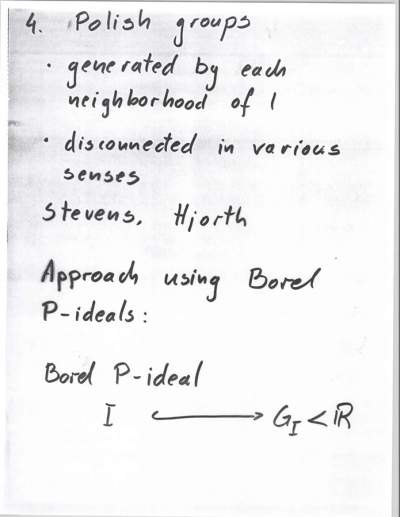 4. Polish groups
· generated by each
neighborhood of 1
· disconnected in various
senses
Stevens, Hjorth
Approach using Borel
P-ideals:
Borel P-ideal
I ⟷ G_I < ℝ